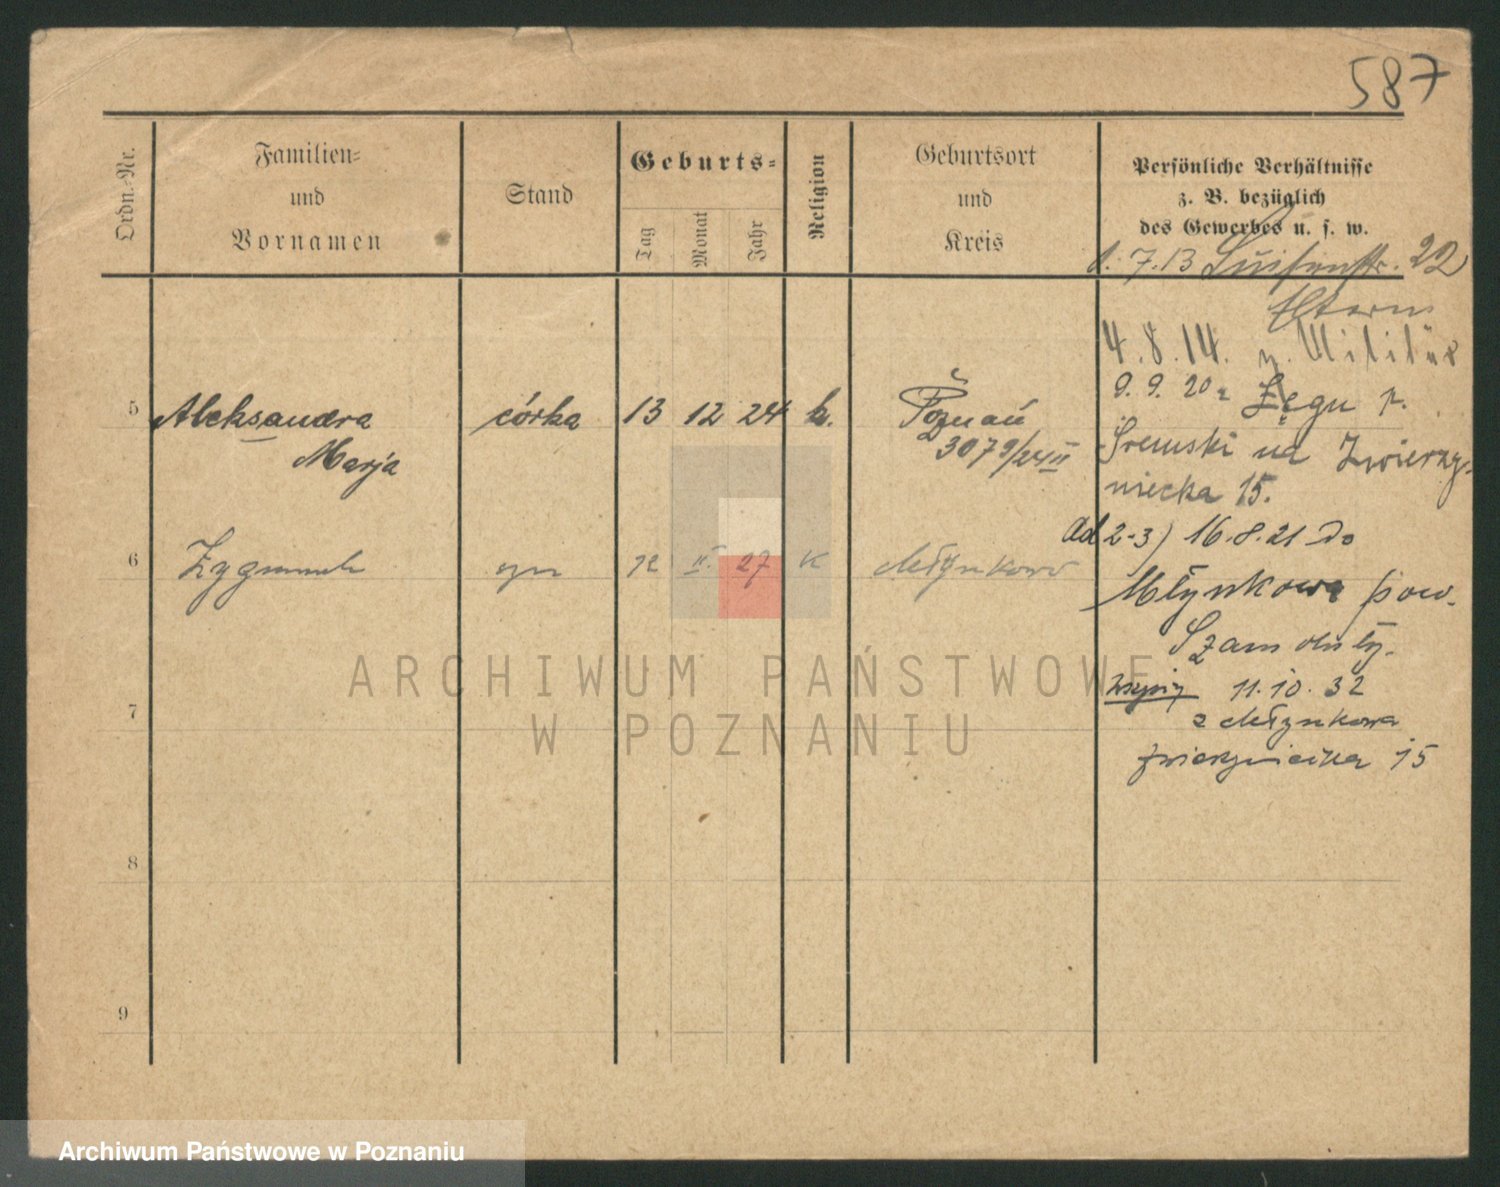 587
Ordn.-Nr.
Familien-
und
Vornamen
Stand
Geburts-
Tag
Monat
Jahr
Religion
Geburtsort
und
Kreis
Persönliche Verhältnisse
z. B. bezüglich
des Gewerbes u. s. w.
1. 7. 13 Luisenstr. 22
Eltern
4. 8. 14. z. Militär
9. 9. 20 z Łęgu p.
Śremski na Zwierzy-
niecka 15.
5 Aleksandra córka 13 12 24 k. Poznań
Marja 3079/24 II
ad 2-3) 16. 8. 21 do
6 Zygmunt syn 12 II. 27 K Młynkowo
Młynkowa pow.
Szamotuły.
11. 10. 32
z Młynkowa
Zwierzyniecka 15
7
8
9
ARCHIWUM PAŃSTWOWE
W POZNANIU
Archiwum Państwowe w Poznaniu